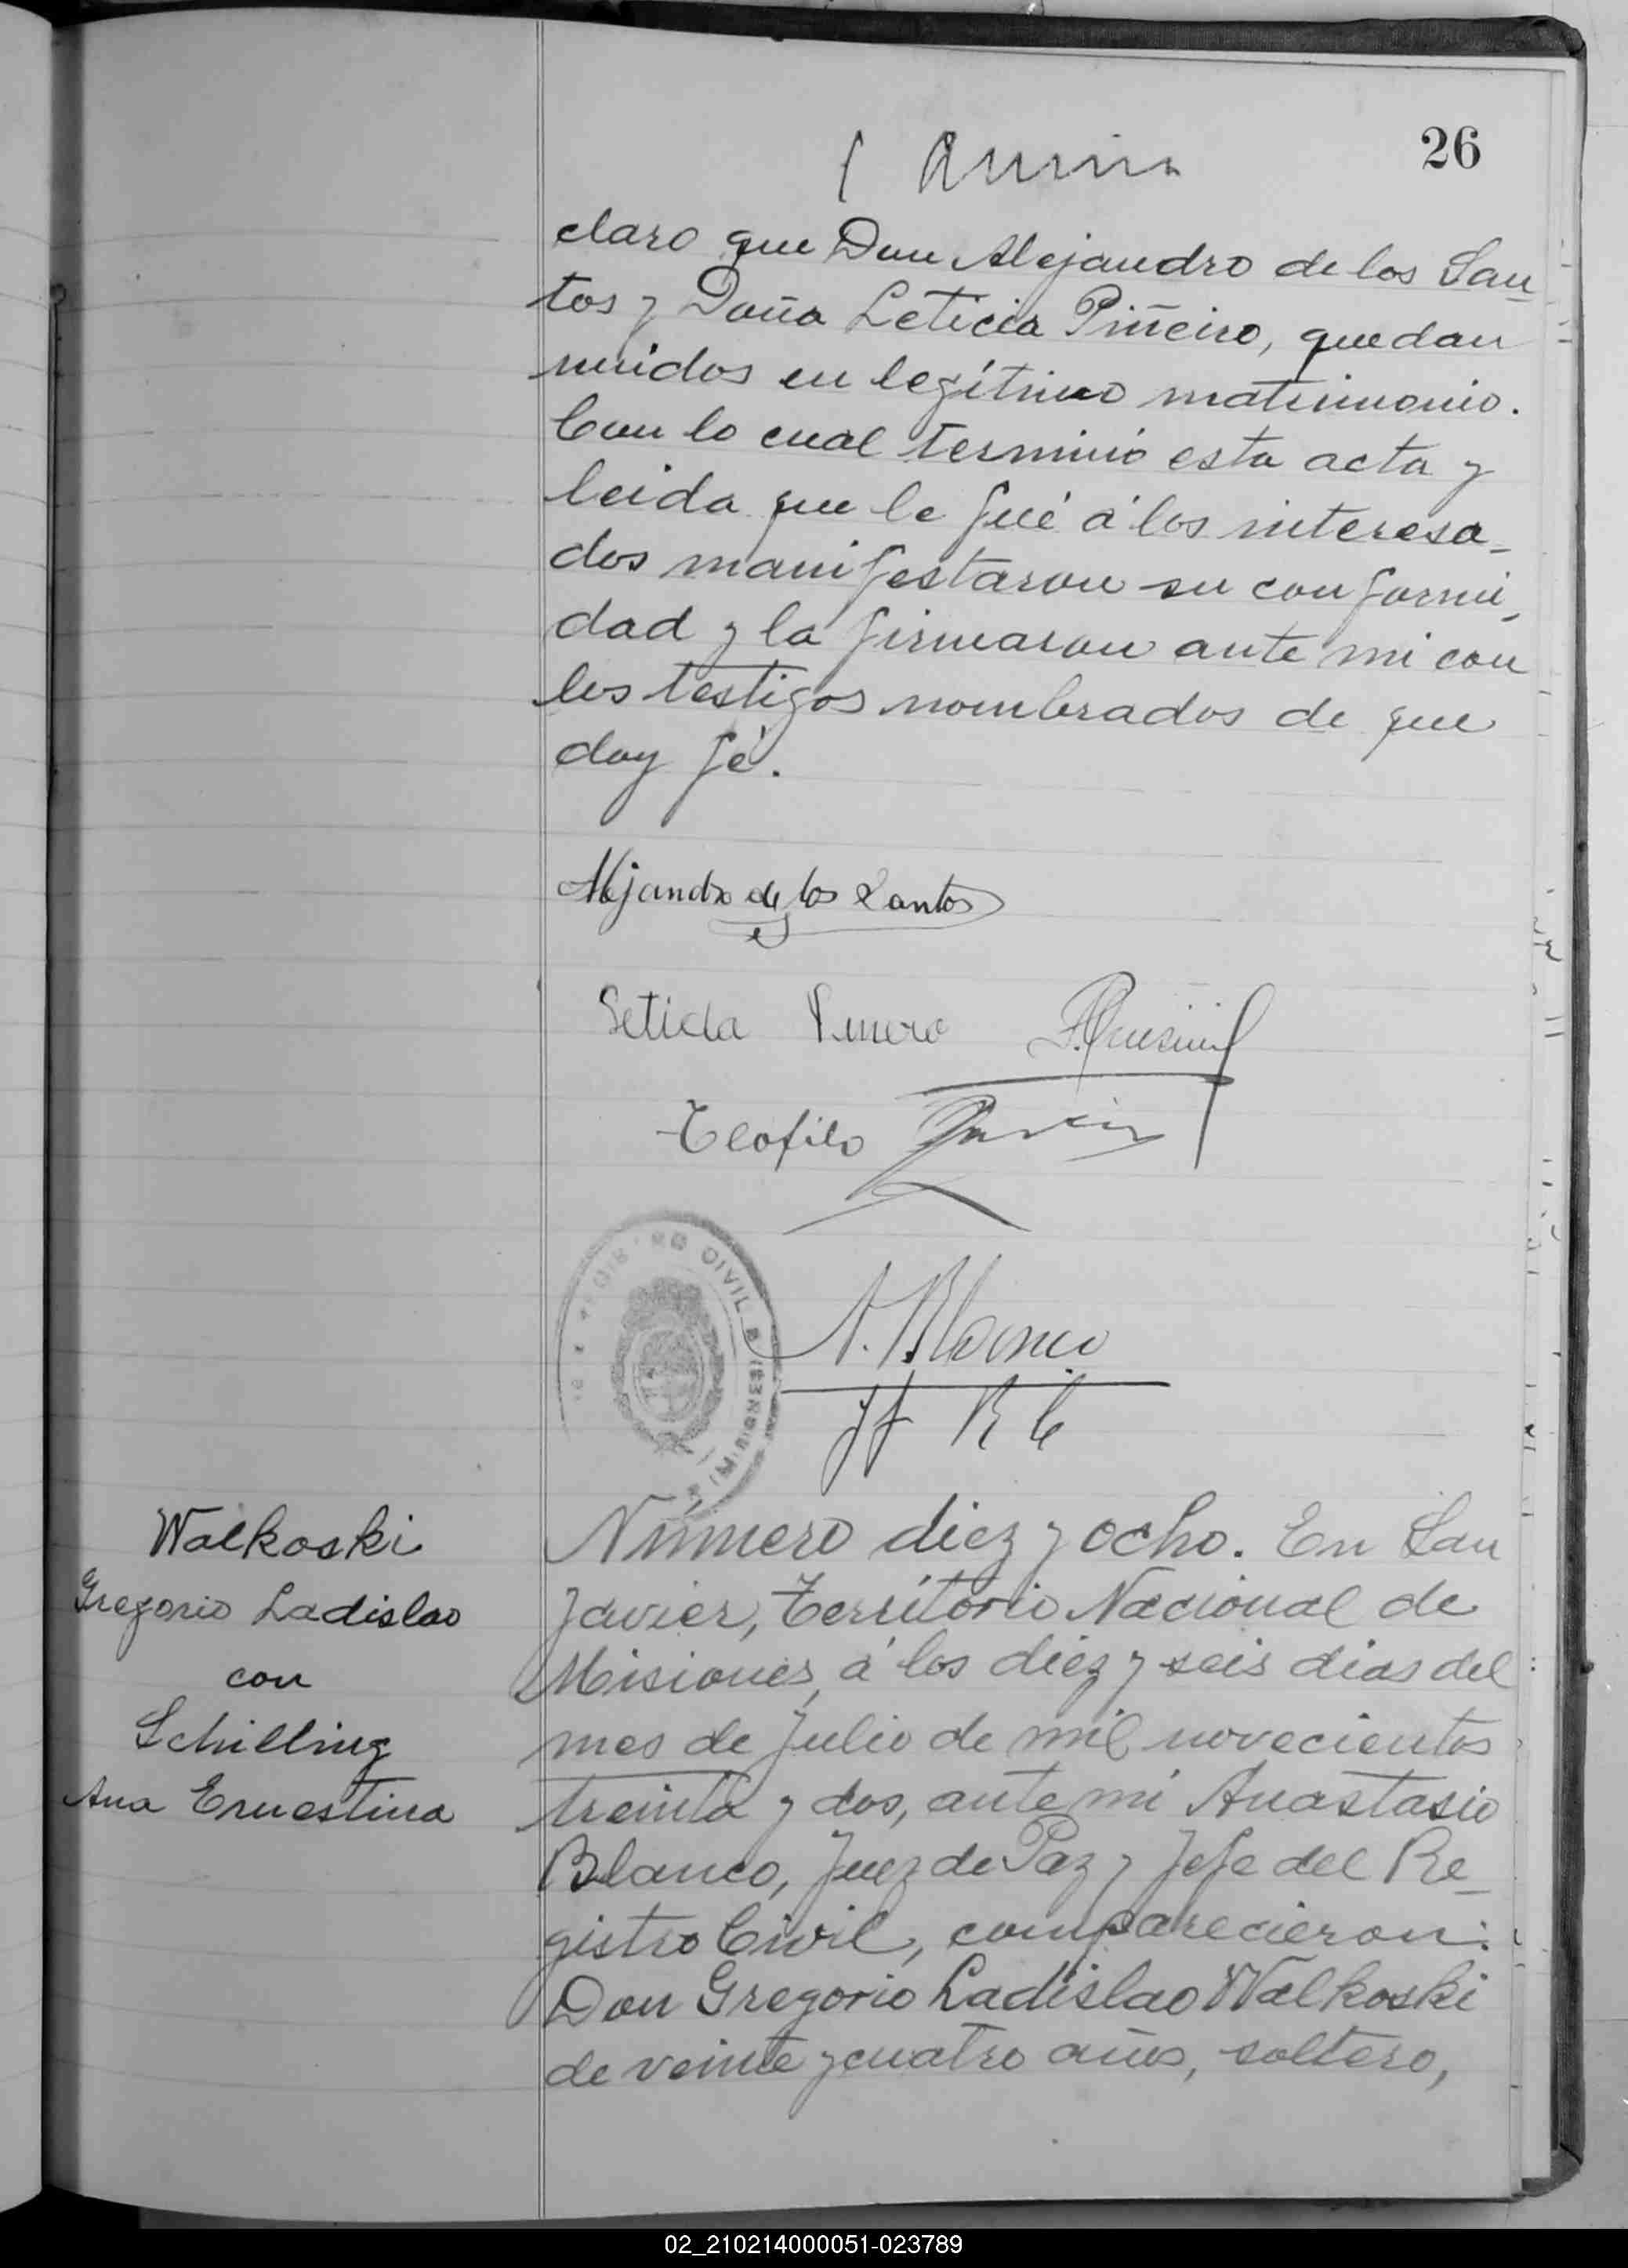 26
claro que Don Alejandro de los San_
tos y Doña Leticia Piñeiro, quedan
unidos en legítimo matrimonio.
Con lo cual terminó esta acta y
leida que le fué á los interesa_
dos manifestaron su conformi_
dad y la firmaron ante mi con
los testigos nombrados de que
doy fé.
Alejandro de los Santos
Leticia
Teofilo
REGISTRO CIVIL
A. Blanco
Jf R C
Walkoski
Gregorio Ladislao
con
Schilling
Ana Ernestina
Número diez y ocho. En San
Javier, Territorio Nacional de
Misiones, á los diez y seis dias del
mes de Julio de mil novecientos
treinta y dos, ante mi Anastasio
Blanco, Juez de Paz y Jefe del Re_
gistro Civil, comparecieron:
Don Gregorio Ladislao Walkoski
de veinte y cuatro años, soltero,
02_210214000051-023789